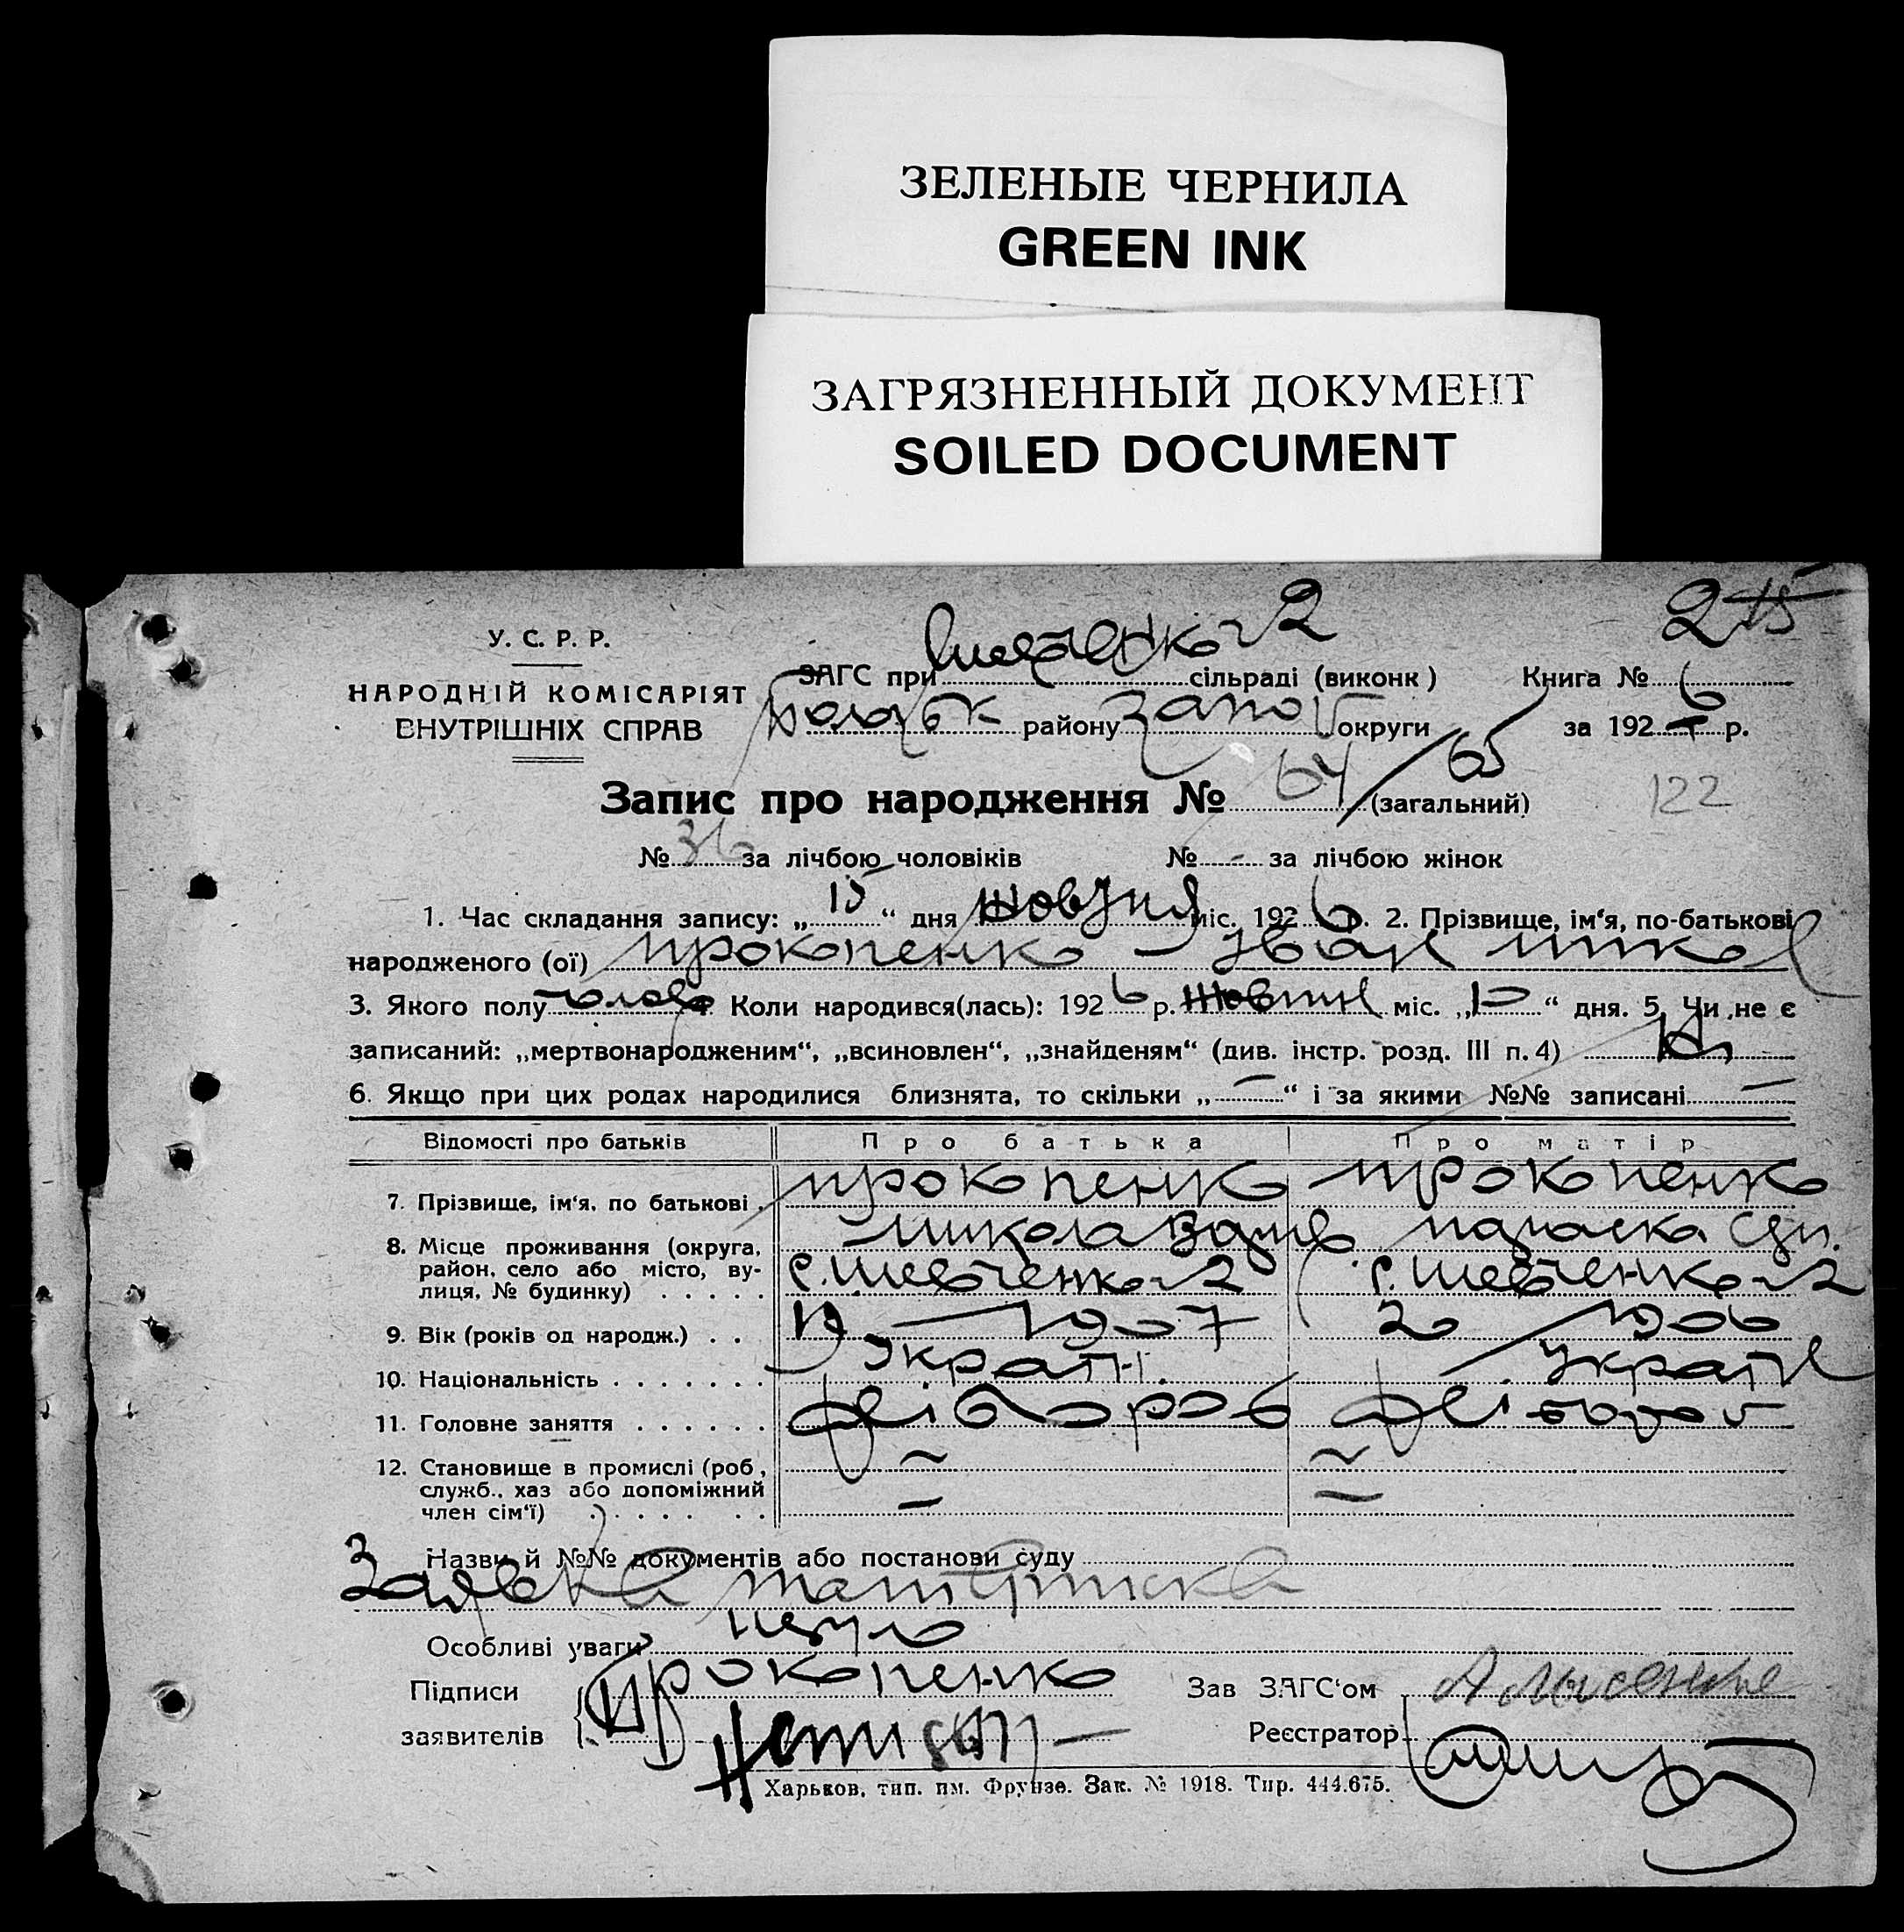 ЗЕЛЕНЫЕ ЧЕРНИЛА
GREEN INK
ЗАГРЯЗНЕННЫЙ ДОКУМЕНТ
SOILED DOCUMENT
У. С. Р. Р.
НАРОДНІЙ КОМІСАРІЯТ
ВНУТРІШНІХ СПРАВ
2 15
ЗАГС при Шевченко 2 сільраді (виконк) Книга № 6
району Запор округи за 192 6 р.
Запис про народження № 64/65 (загальний)
122
№ 36 за лічбою чоловіків № - за лічбою жінок
1. Час складання запису: „ 15 “ дня жовтня міс. 192 6 р. 2. Прізвище, ім‘я, по-батькові
народженого (ої) Прокопенко - Іван Микол
3. Якого полу чолов 4 Коли народився(лась): 192 6 р. жовтня міс. „ 10 “ дня. 5. Чи не є
записаний: „мертвонародженим“, „всиновлен“, „знайденям“ (див. інстр. розд. III п. 4) Ні
6. Якщо при цих родах народилися близнята, то скільки „ — “ і за якими №№ записані —
Відомості про батьків Про батька Про матір
7. Прізвище, ім‘я, по батькові . Прокопенко Прокопенко
Микола Параска
8. Місце проживання (округа, район, село або місто, вулиця, № будинку) . . . . . с. Шевченко 2 с. Шевченко 2
9. Вік (років од народж.) . . 19 — 1907 20 / 1906
10. Національність . . . . . . . Україн. Україн
11. Головне заняття . . . . . . хлібороб хлібороб
12. Становище в промислі (роб, служб., хаз або допоміжний член сім‘ї) . . . . . . . — —
Назви й №№ документів або постанови суду
Заявка
Особливі уваги
Підписи заявителів Прокопенко
Зав ЗАГС‘ом
Реєстратор
Харьков, тип. им. Фрунзе. Зак. № 1918. Тир. 444.675.